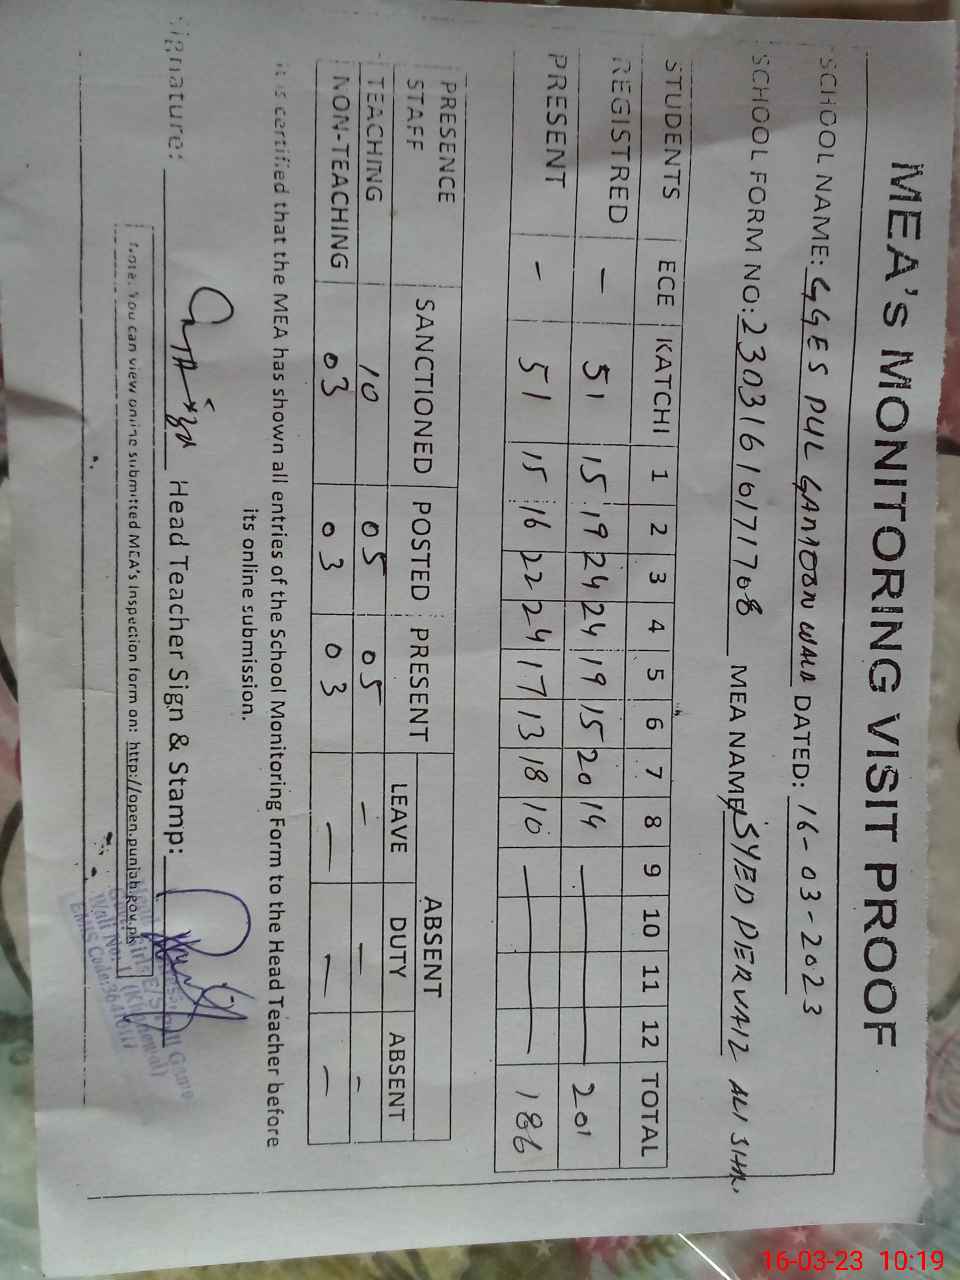 MEA's MONITORING VISIT PROOF
SCHOOL NAME: GGES PUL GAMOON WALA DATED: 16-03-2023
SCHOOL FORM NO: 2303161617708 MEA NAME: SYED PERVAIZ ALI SHH.
STUDENTS ECE KATCHI 1 2 3 4 5 6 7 8 9 10 11 12 TOTAL
REGISTRED - 51 15 19 24 24 19 15 20 14 — 201
PRESENT - 51 15 16 22 24 17 13 18 10 — 186
PRESENCE STAFF SANCTIONED POSTED PRESENT ABSENT
LEAVE DUTY ABSENT
TEACHING 10 05 05 - - -
NON-TEACHING 03 03 03 - - -
It is certified that the MEA has shown all entries of the School Monitoring Form to the Head Teacher before
its online submission.
Signature: Head Teacher Sign & Stamp:
Note: You can view online submitted MEA's Inspection form on: http://open.punjab.gov.pk
EMIS Code:
16-03-23 10:19